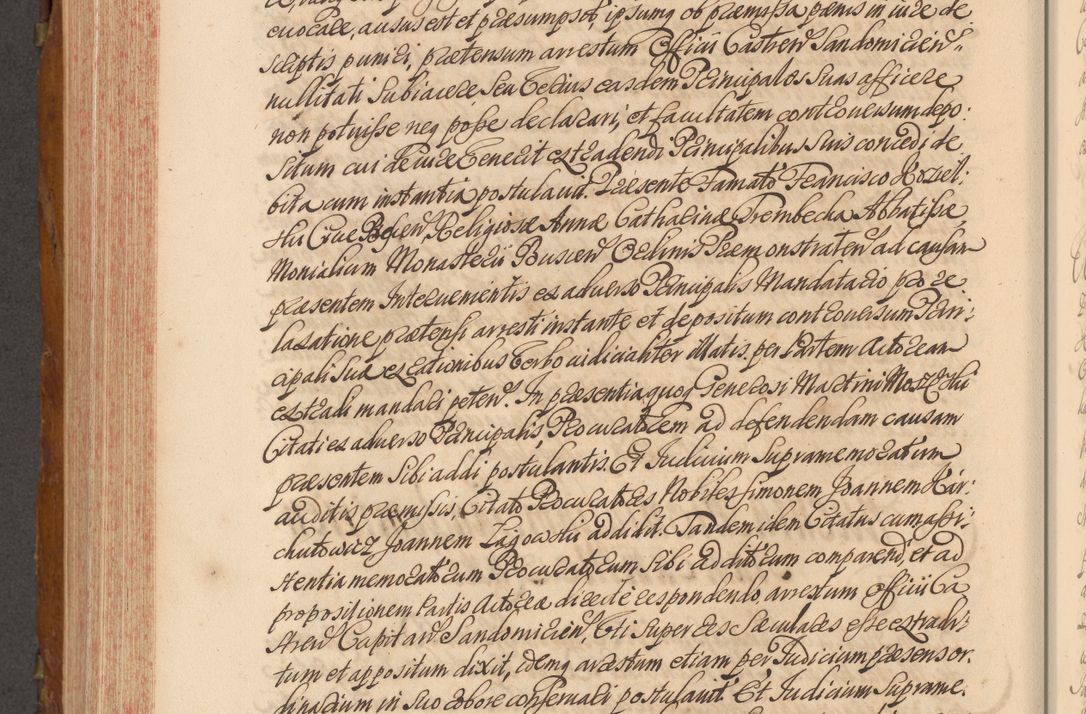 evocare, ausus est et præsumpsit, ipsumq ob præmissa pænis in iure de
scriptis puniri, prætensum arrestum Officii Castren Sandomirien
nullitati Subiacere, Seu Tertius easdem Principales Suas afficere
non potuisse neq posse declarari, et facultatem controversum depo:
situm cui de iure Venerit extradendi Principalibus Suis concedi de
bita cum instantia postulavit. Præsente Famato Francisco Koziel:
ski Religiosæ Annæ Catharinæ Trembecka Abbatissæ
Monialium Monasterii Buscen Ordinis Præmonstraten ad causam
præsentem Intervenientis ex adverso Principalis Mandatario pro re
laxatione prætensi arresti instante et depositum controversum Prin:
cipali Suæ ex rationibus Verbo iudicialiter illatis per Partem Actoream
extradi mandari peten. In præsentia quoq Generosi Martini Moszczski
Citati ex adverso Principalis, Procuratorem ad defendendam causam
præsentem Sibi addi postulantis. Et Judicium Supramemoratum
auditis præmissis, Citato Procuratores Nobiles Simonem Joannem Kar:
chutowicz Joannem Lagowski addidit. Tandem idem Citatus cum assi:
stentia memoratorum Procuratorum Sibi additorum comparend, et ad
propositionem Partis Actoreæ directe respondendo arrestum Officii Ca
stren Capitan Sandomirien, Uti Super res Sæculares esse extradi:
tum et appositum dixit, idemq arrestum etiam per Judicium præsens or:
dinarium in Suo robore conservari postulavit. Et Judicium Suprame: